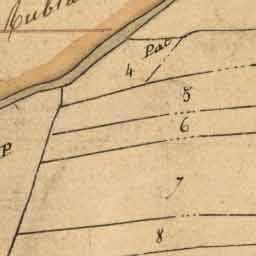 4
Pat
5
6
P
7
8